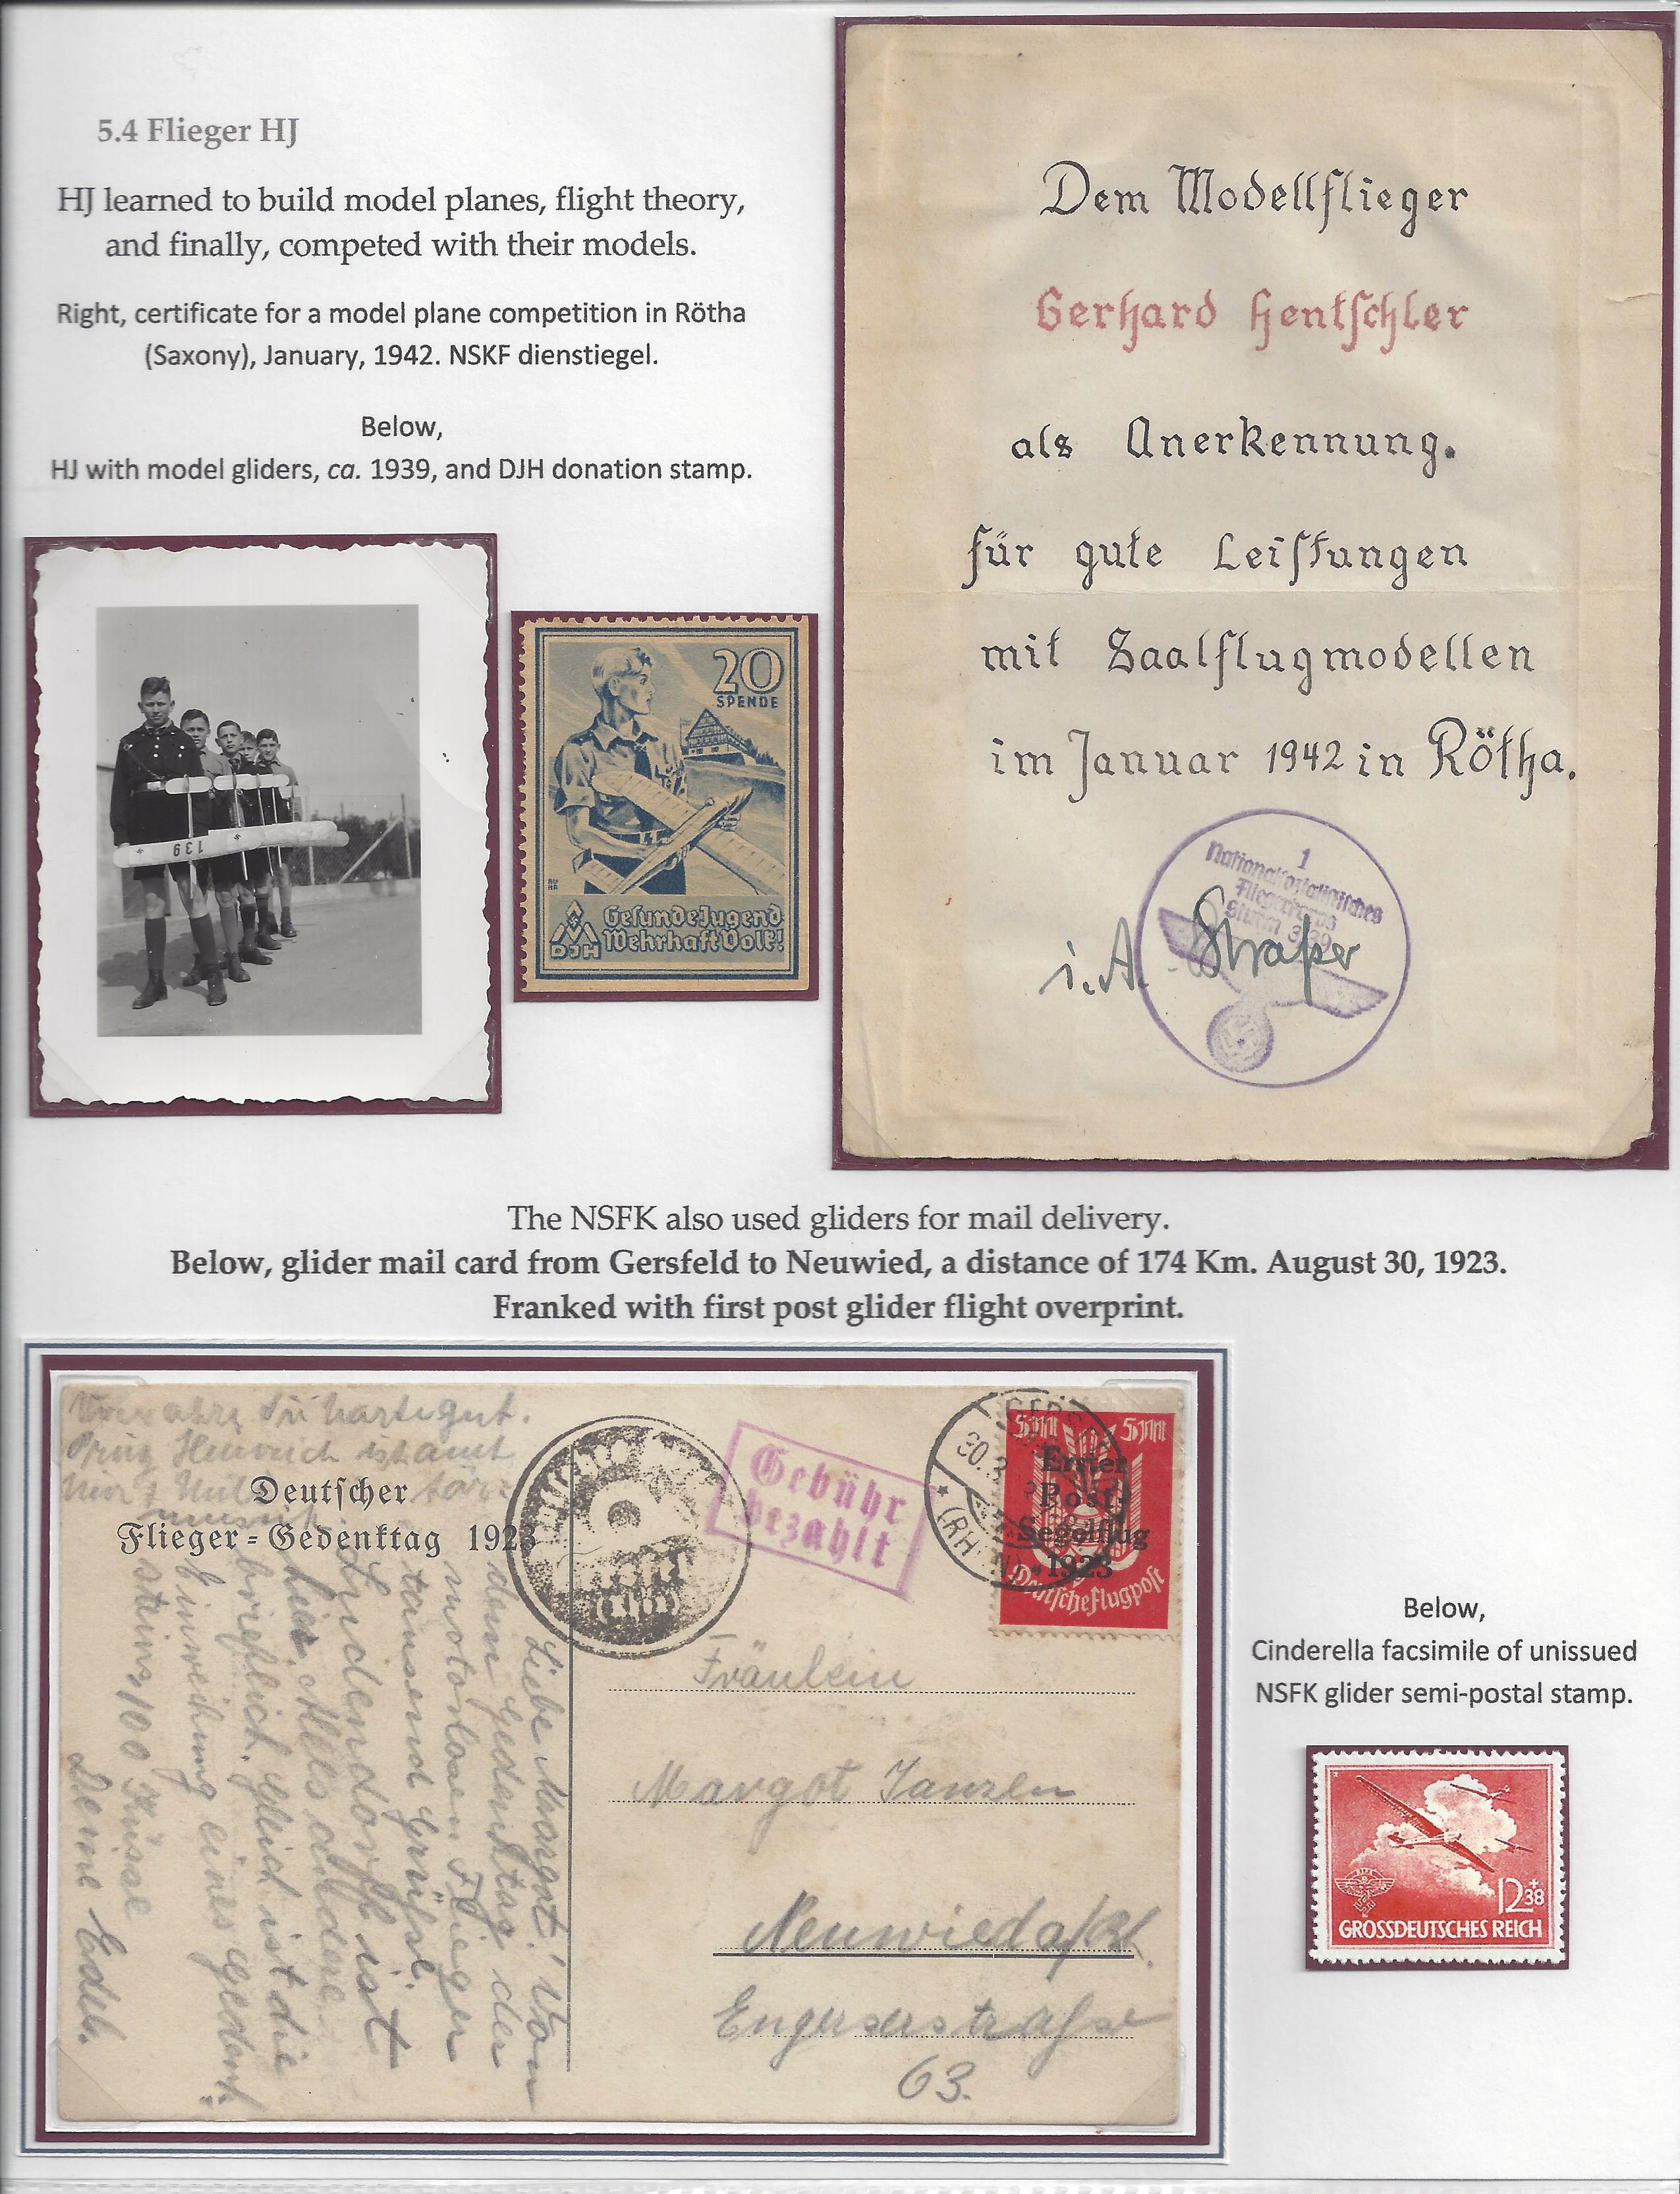 5.4 Flieger HJ
HJ learned to build model planes, flight theory,
and finally, competed with their models.
Right, certificate for a model plane competition in Rötha
(Saxony), January, 1942. NSKF dienstiegel.
Below,
HJ with model gliders, ca. 1939, and DJH donation stamp.
139
20
SPENDE
DJH
Gesunde Jugend
Wehrhaft Volk!
Dem Modellflieger
Gerhard Hentschler
als Anerkennung.
für gute Leistungen
mit Saalflugmodellen
im Januar 1942 in Rötha.
1
Nationalsozialistisches
Fliegerkorps
Sturm
i.A. Straßer
The NSFK also used gliders for mail delivery.
Below, glider mail card from Gersfeld to Neuwied, a distance of 174 Km. August 30, 1923.
Franked with first post glider flight overprint.
Deutscher
Flieger-Gedenktag 1923
Gebühr
bezahlt
5M 5M
Erster
Post-
Segelflug
1923
Deutsche Flugpost
Liebe Margot! Von
dem Gedenktag der
motorlosen Flieger
tausend Grüße.
Lindendorf ist
hier. Alles andere
brieflich. Gleich ist die
Einweihung eines Gedenk-
steins, 100 Küsse
Deine Edel.
Fräulein
Margot Janzen
Neuwied a/Rh.
Engerserstraße
63.
Below,
Cinderella facsimile of unissued
NSFK glider semi-postal stamp.
12+38
GROSSDEUTSCHES REICH